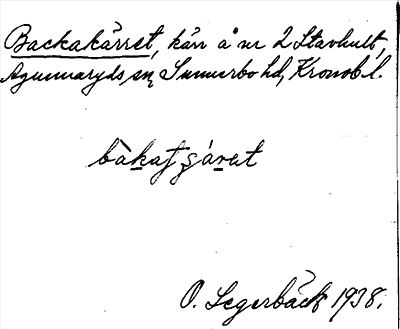 Backakärret, kärr å nr 2 Stavhult,
Agunnaryds sn, Sunnerbo hd, Kronob. l.
O. Segerbäck 1938.